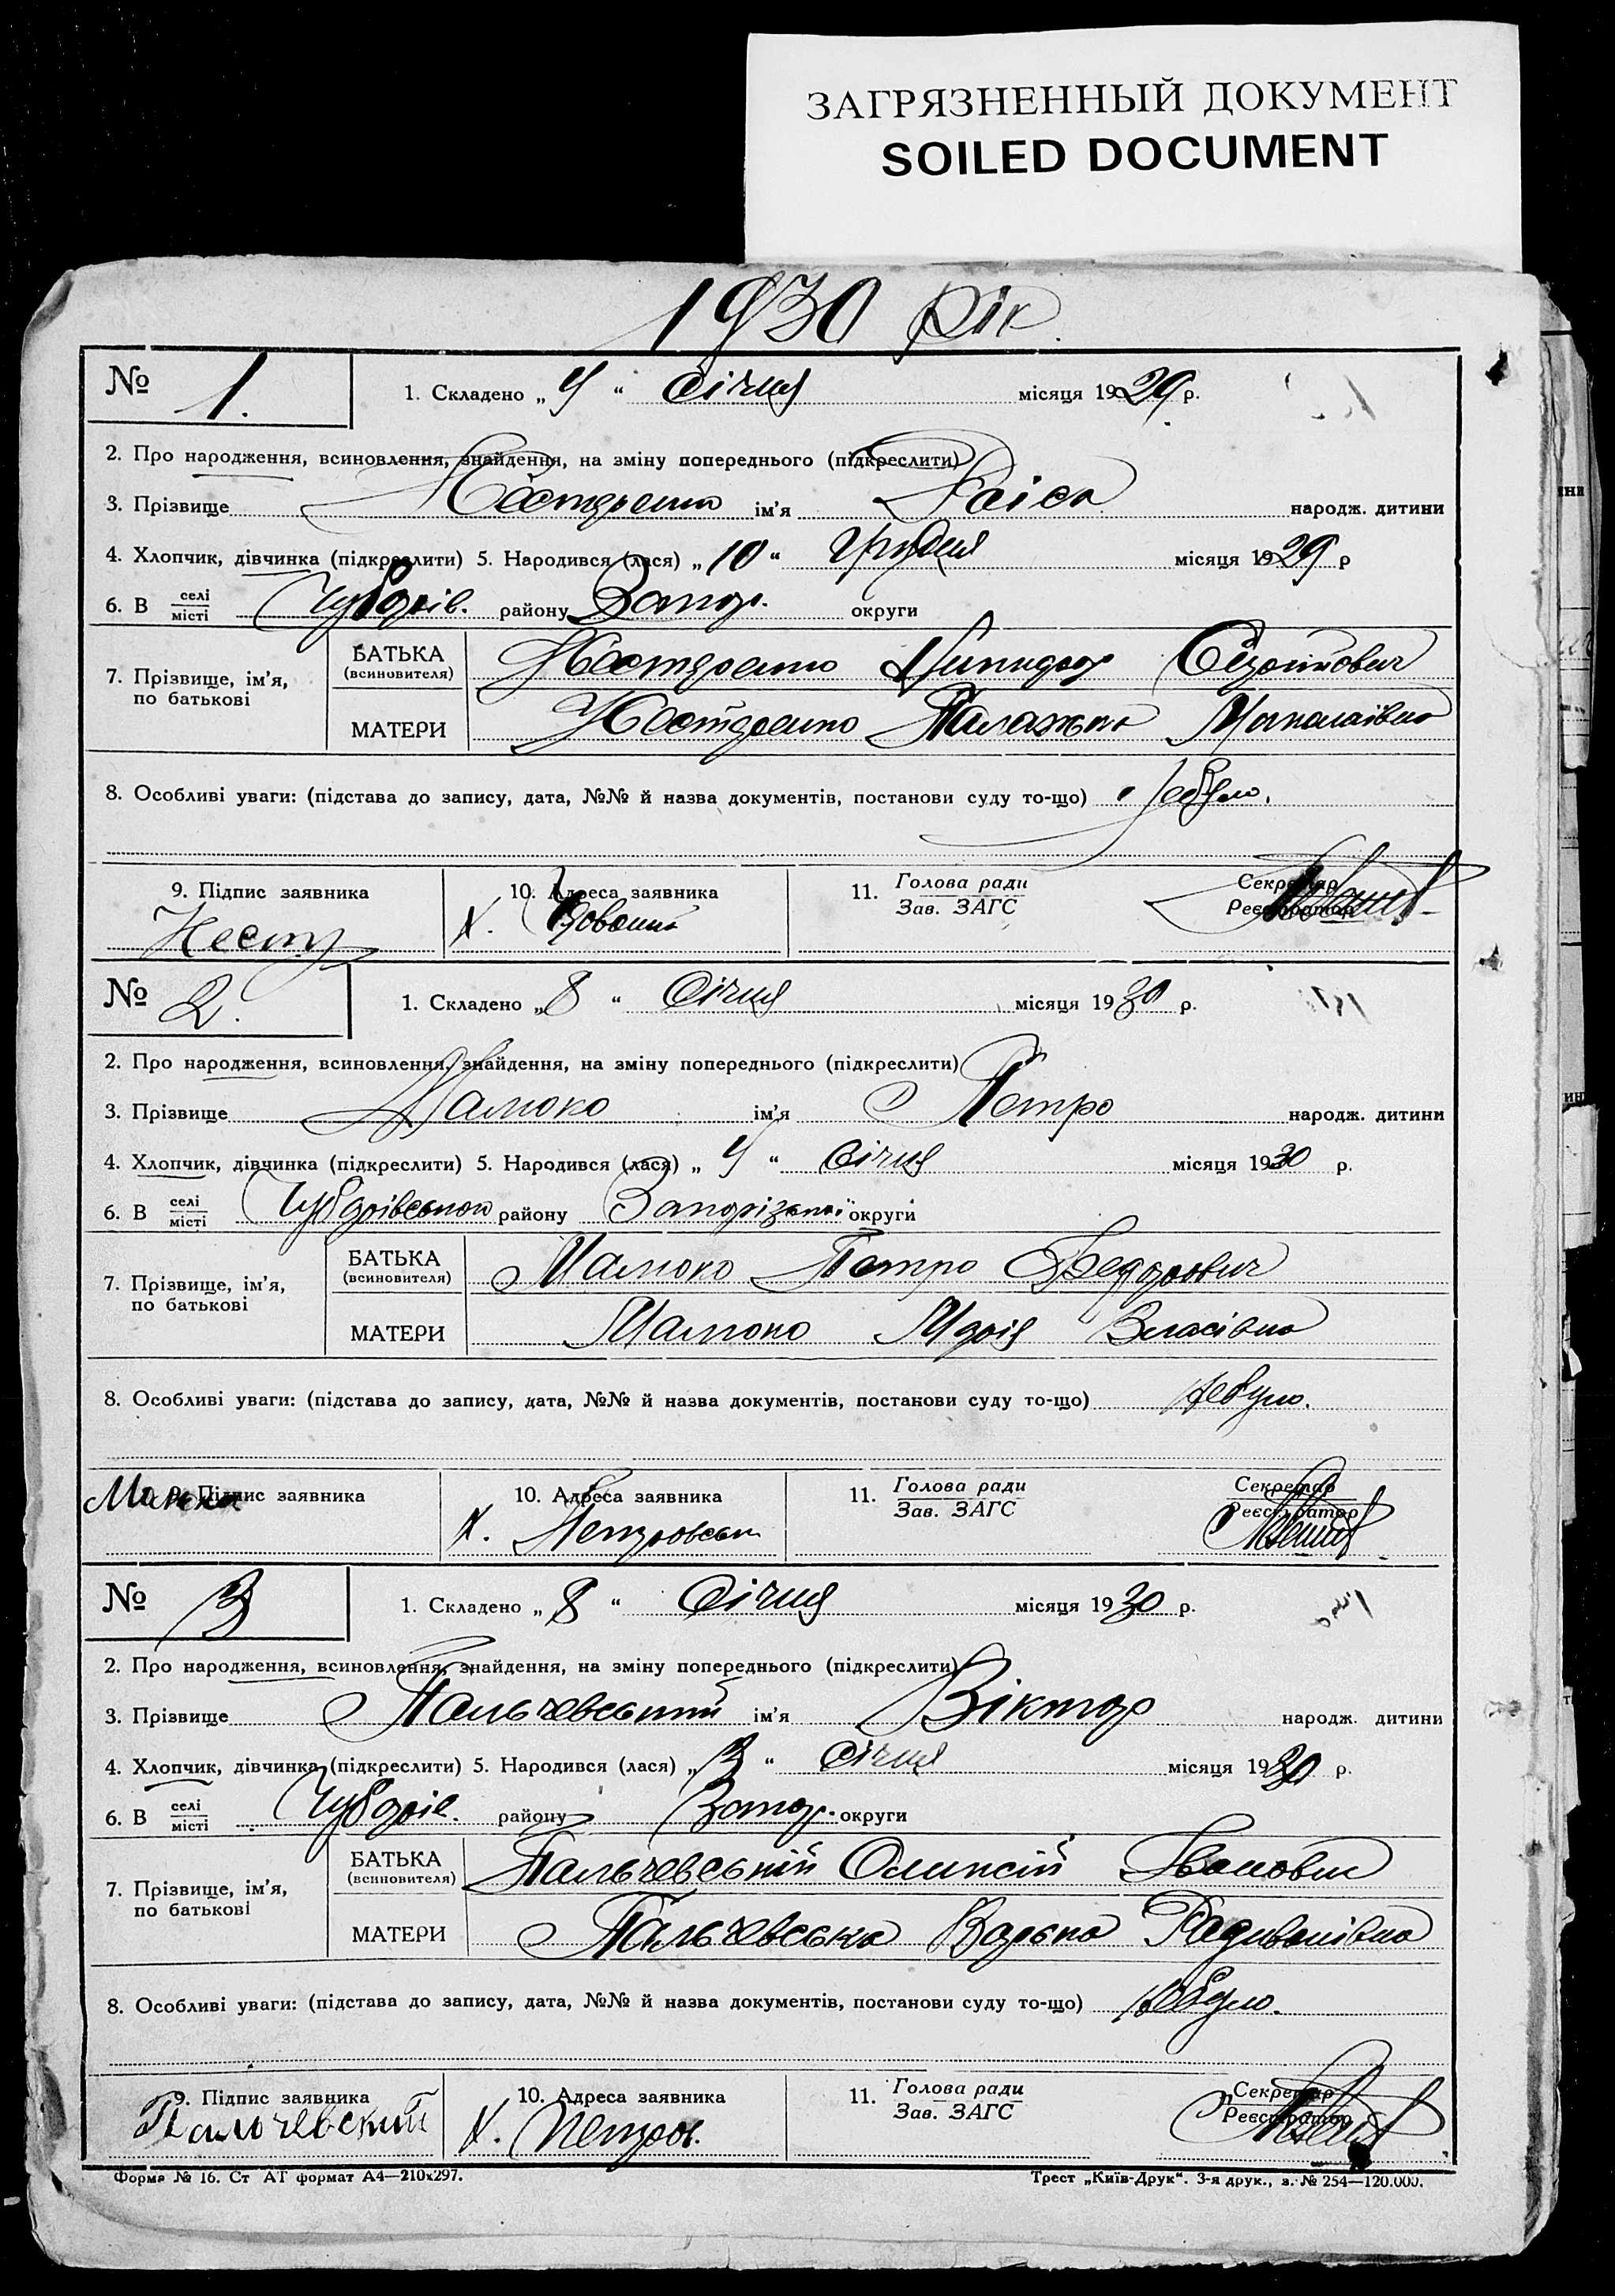 ЗАГРЯЗНЕННЫЙ ДОКУМЕНТ
SOILED DOCUMENT
1930 рік.
№ 1. 1. Складено „ 4 “ Січня місяця 1929 р.
2. Про народження, всиновлення, знайдення, на зміну попереднього (підкреслити)
3. Прізвище ім'я Раіса народж. дитини
4. Хлопчик, дівчинка (підкреслити) 5. Народився (лася) „ 10 “ Грудня місяця 1929 р
6. В селі місті Чубарів. району Запор. округи
7. Прізвище, ім'я, по батькові
БАТЬКА (всиновителя)
МАТЕРИ
8. Особливі уваги: (підстава до запису, дата, №№ й назва документів, постанови суду то-що) Небуло.
9. Підпис заявника 10. Адреса заявника 11. Голова ради Зав. ЗАГС Секретар Реєстратор
Нест х.
№ 2. 1. Складено „ 8 “ Січня місяця 1930 р.
2. Про народження, всиновлення, знайдення, на зміну попереднього (підкреслити)
3. Прізвище Мамоко ім'я Петро народж. дитини
4. Хлопчик, дівчинка (підкреслити) 5. Народився (лася) „ 4 “ Січня місяця 1930 р.
6. В селі місті Чубарівського району Запорізької округи
7. Прізвище, ім'я, по батькові
БАТЬКА (всиновителя) Мамоко Петро Федорович
МАТЕРИ Мамоко Марія Власівна
8. Особливі уваги: (підстава до запису, дата, №№ й назва документів, постанови суду то-що) Небуло.
9. Підпис заявника 10. Адреса заявника 11. Голова ради Зав. ЗАГС Секретар Реєстратор
х. Петровськ
№ 3 1. Складено „ 8 “ Січня місяця 1930 р.
2. Про народження, всиновлення, знайдення, на зміну попереднього (підкреслити)
3. Прізвище Пальчевський ім'я Віктор народж. дитини
4. Хлопчик, дівчинка (підкреслити) 5. Народився (лася) „ 3 “ Січня місяця 1930 р.
6. В селі місті Чубарів. району Запор. округи
7. Прізвище, ім'я, по батькові
БАТЬКА (всиновителя) Пальчевський Олексій Іванович
МАТЕРИ Пальчевська Варька Радивонівна
8. Особливі уваги: (підстава до запису, дата, №№ й назва документів, постанови суду то-що) Небуло.
9. Підпис заявника 10. Адреса заявника 11. Голова ради Зав. ЗАГС Секретар Реєстратор
Пальчевский х. Петров.
Форма № 16. Ст АТ формат А4—210x297. Трест „Київ-Друк“. 3-я друк., з. № 254—120.000.